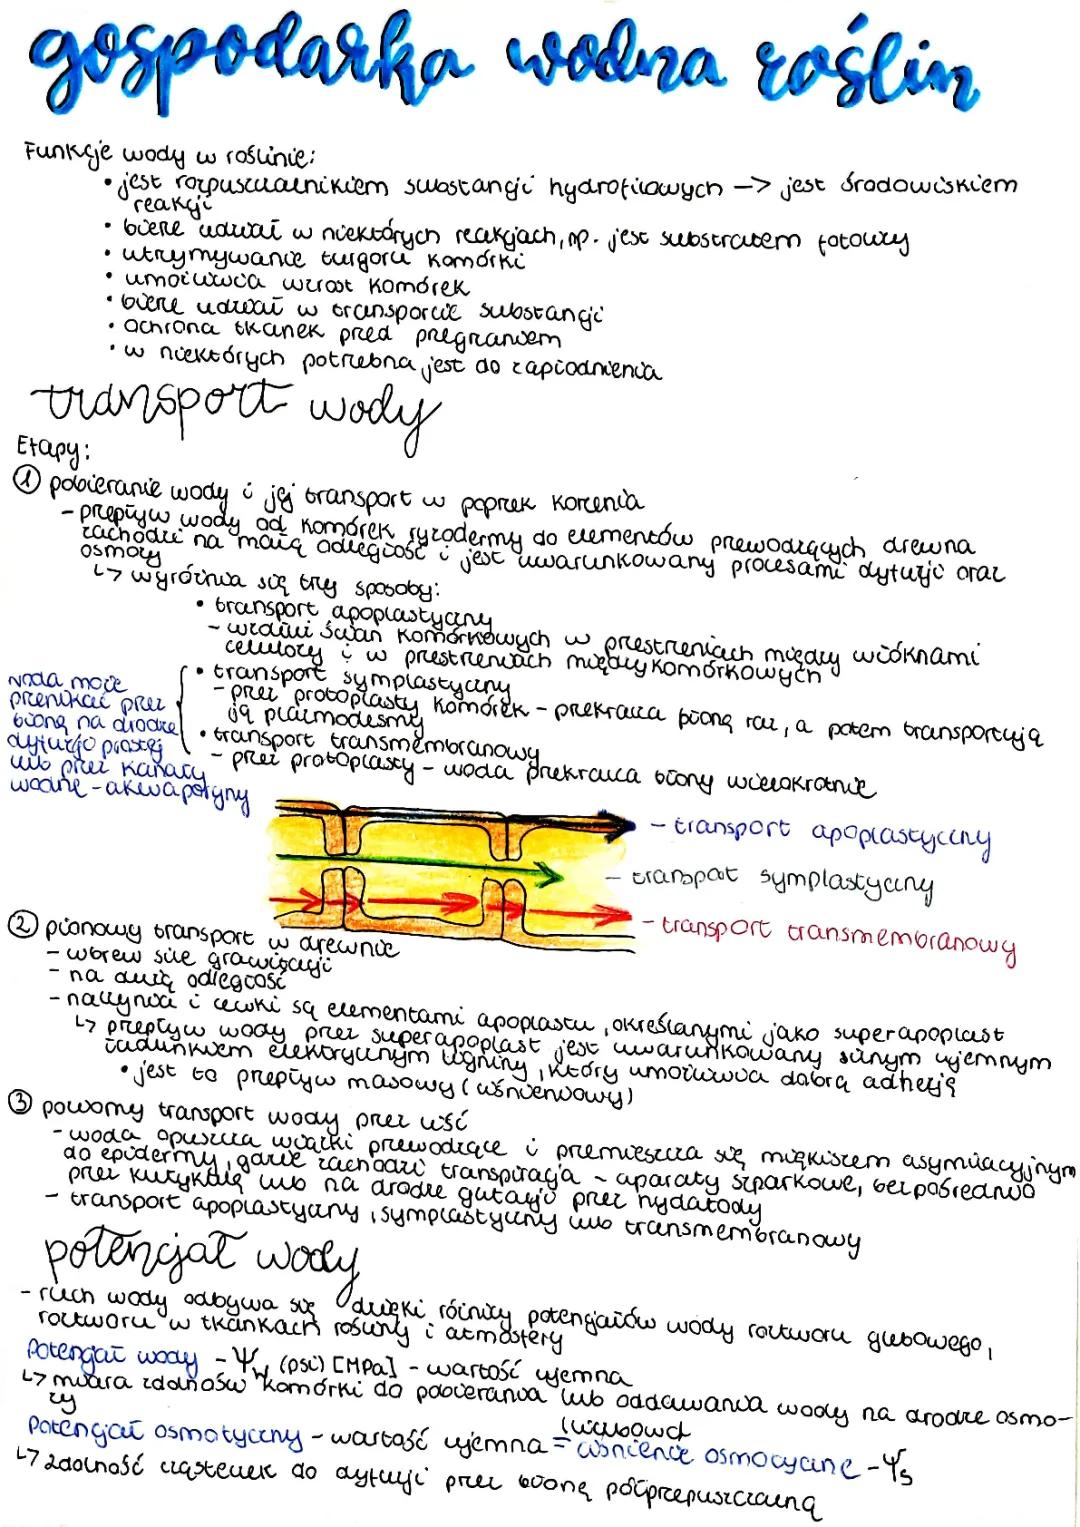 gospodarka wodna roślin
Funkcje wody w roślinie:
• jest rozpuszczalnikiem substancji hydrofilowych -> jest środowiskiem
reakcji
• bierze udział w niektórych reakcjach, np. jest substratem fotolizy
• utrzymywanie turgoru komórki
• umożliwia wzrost komórek
• bierze udział w transporcie substancji
• ochrona tkanek przed przegrzaniem
• w niektórych potrzebna jest do zapłodnienia
transport wody
Etapy:
① pobieranie wody i jej transport w poprzek korzenia
- przepływ wody od komórek ryzodermy do elementów przewodzących drewna
zachodzi na małą odległość i jest uwarunkowany procesami dyfuzji oraz
osmozy
↳ wyróżnia się trzy sposoby:
• transport apoplastyczny
- wzdłuż ścian komórkowych w przestrzeniach między włóknami
celulozy i w przestrzeniach międzykomórkowych
• transport symplastyczny
- przez protoplasty komórek - przekracza błonę raz, a potem transportują
ją plazmodesmy
• transport transmembranowy
- przez protoplasty - woda przekracza błony wielokrotnie
woda może
przenikać przez
błonę na drodze
dyfuzji prostej
lub przez kanały
wodne - akwaporyny
- transport apoplastyczny
- transpot symplastyczny
- transport transmembranowy
② pionowy transport w drewnie
- wbrew sile grawitacji
- na dużą odległość
- naczynia i cewki są elementami apoplastu, określanymi jako superapoplast
↳ przepływ wody przez superapoplast jest uwarunkowany silnym ujemnym
ładunkiem elektrycznym ligniny, który umożliwia dobrą adhezję
• jest to przepływ masowy (ciśnieniowy)
③ poziomy transport wody przez liść
- woda opuszcza wiązki przewodzące i przemieszcza się miękiszem asymilacyjnym
do epidermy, gdzie zachodzi transpiracja - aparaty szparkowe, bezpośrednio
przez kutykulę lub na drodze gutacji przez hydatody
- transport apoplastyczny, symplastyczny lub transmembranowy
potencjał wody
- ruch wody odbywa się dzięki różnicy potencjałów wody roztworu glebowego,
roztworu w tkankach rośliny i atmosfery
Potencjał wody - Ψw (psi) [MPa] - wartość ujemna
↳ miara zdolności komórki do pobierania lub oddawania wody na drodze osmo-
zy
Potencjał osmotyczny - wartość ujemna = ciśnienie osmotyczne - Ψs
↳ zdolność cząsteczek do dyfuzji przez błonę półprzepuszczalną